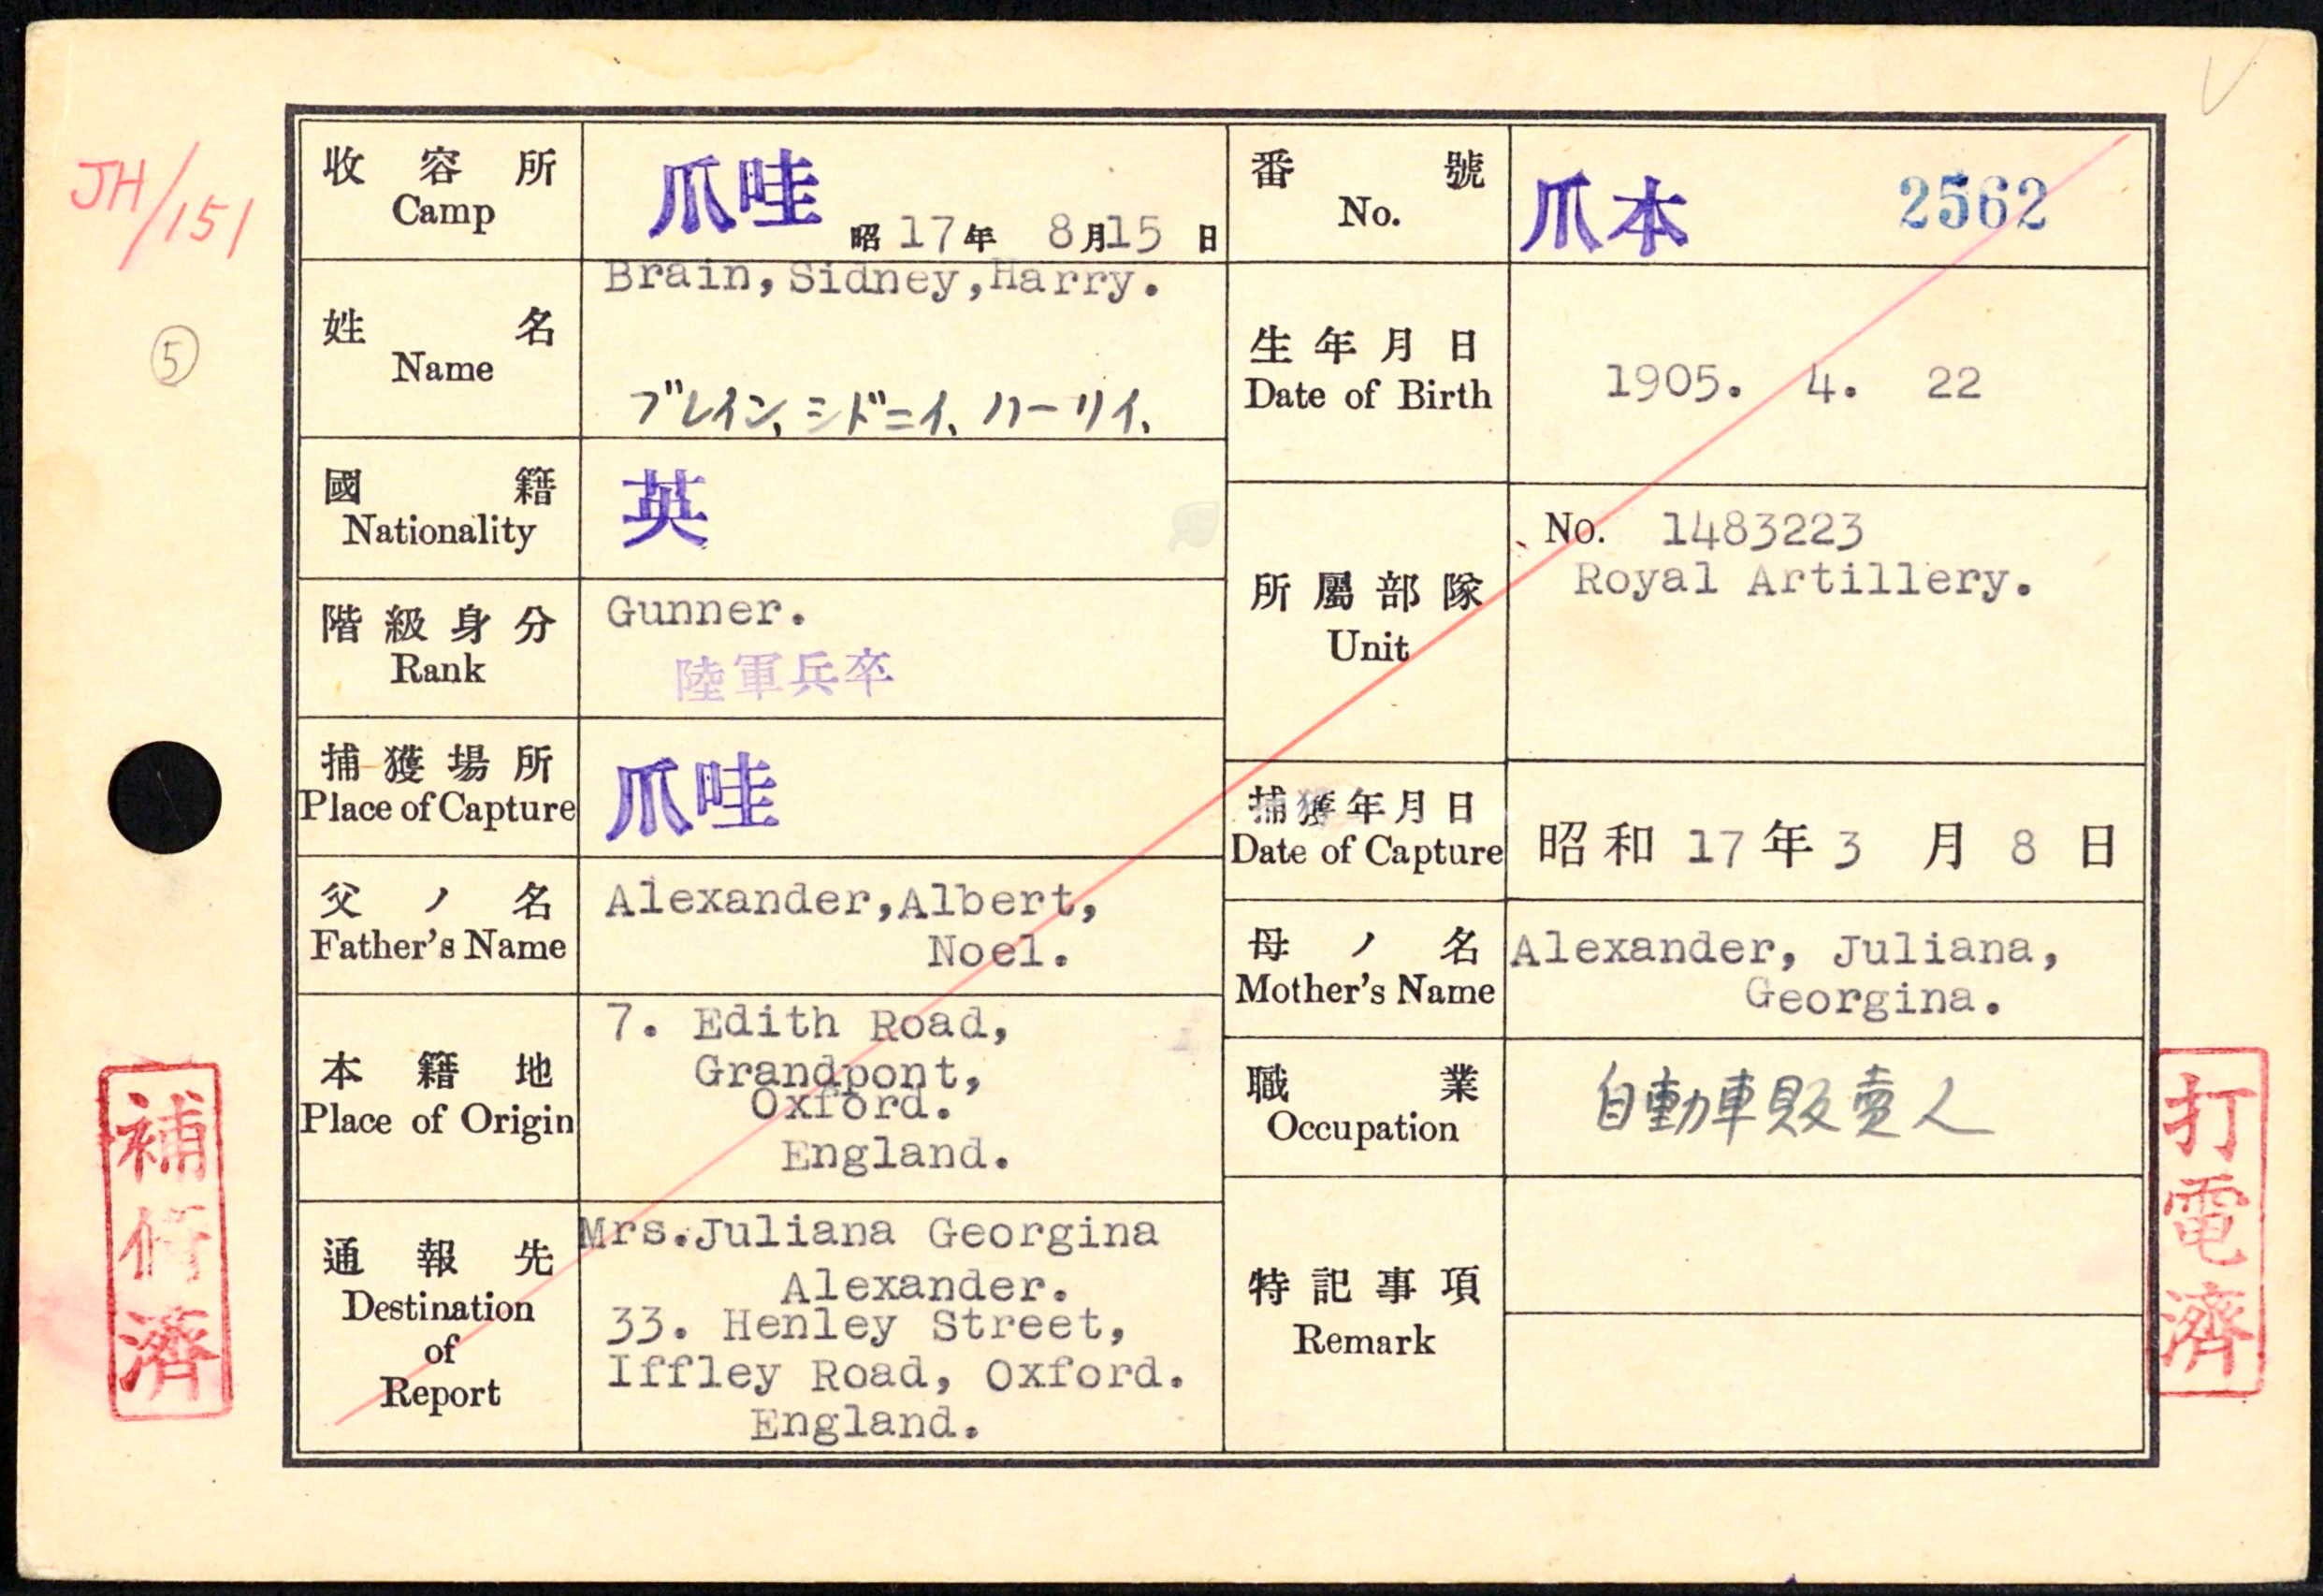 JH/151
⑤
收容所
Camp
爪哇
昭17年 8月15日
番號
No.
爪本 2562
姓名
Name
Brain,Sidney,Harry.
ブレイン、シドニイ、ハーリイ、
生年月日
Date of Birth
1905. 4. 22
國籍
Nationality
英
階級身分
Rank
Gunner.
陸軍兵卒
所屬部隊
Unit
No. 1483223
Royal Artillery.
捕獲場所
Place of Capture
爪哇
捕獲年月日
Date of Capture
昭和17年3月8日
父ノ名
Father's Name
Alexander,Albert,
Noel.
母ノ名
Mother's Name
Alexander, Juliana,
Georgina.
本籍地
Place of Origin
7. Edith Road,
Grandpont,
Oxford.
England.
職業
Occupation
自動車販賣人
通報先
Destination
of
Report
Mrs.Juliana Georgina
Alexander.
33. Henley Street,
Iffley Road, Oxford.
England.
特記事項
Remark
補修濟
打電濟